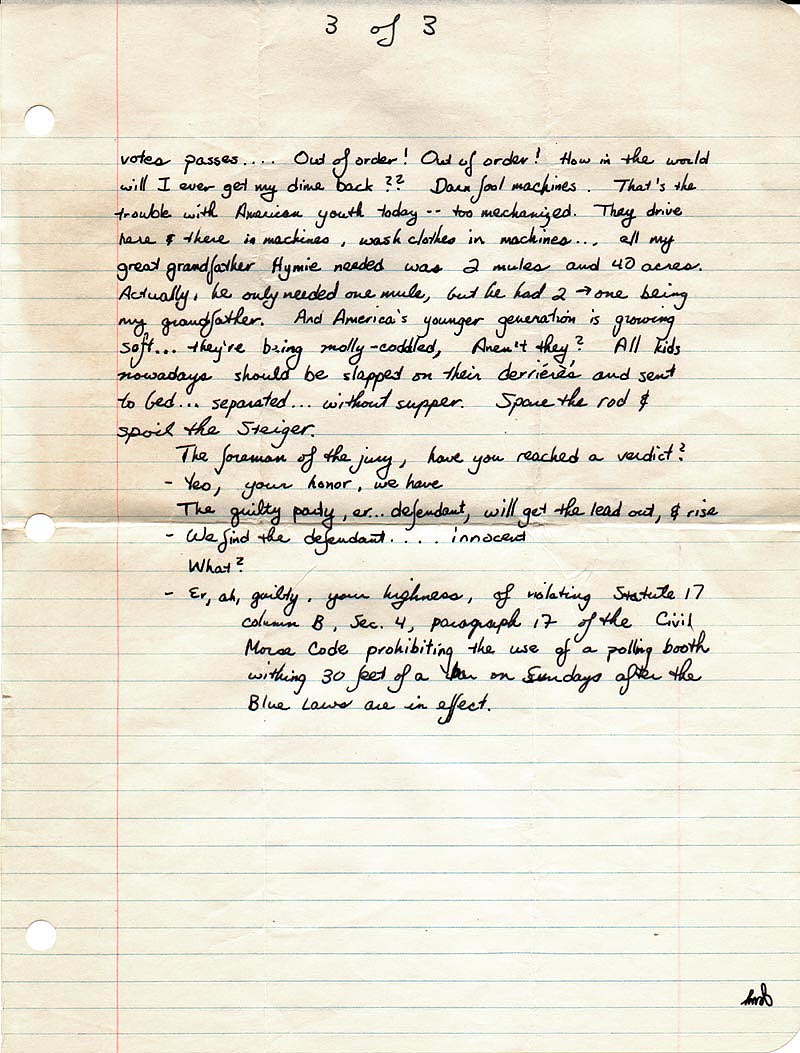 3 of 3
votes passes.... Out of order! Out of order! How in the world
will I ever get my dime back?? Darn fool machines. That's the
trouble with American youth today -- too mechanized. They drive
here & there in machines, wash clothes in machines... all my
great grandfather Hymie needed was 2 mules and 40 acres.
Actually, he only needed one mule, but he had 2 → one being
my grandfather. And America's younger generation is growing
soft... they're being molly-coddled, Aren't they? All kids
nowadays should be slapped on their derriérés and sent
to bed... separated... without supper. Spare the rod &
spoil the Steiger.
The foreman of the jury, have you reached a verdict?
- Yes, your honor, we have
The guilty party, er... defendant, will get the lead out, & rise
- We find the defendant.... innocent
What?
- Er, ah, guilty, your highness, of violating Statute 17
column B, Sec. 4, paragraph 17 of the Civil
Morse Code prohibiting the use of a polling booth
withing 30 feet of a bar on Sundays after the
Blue Laws are in effect.